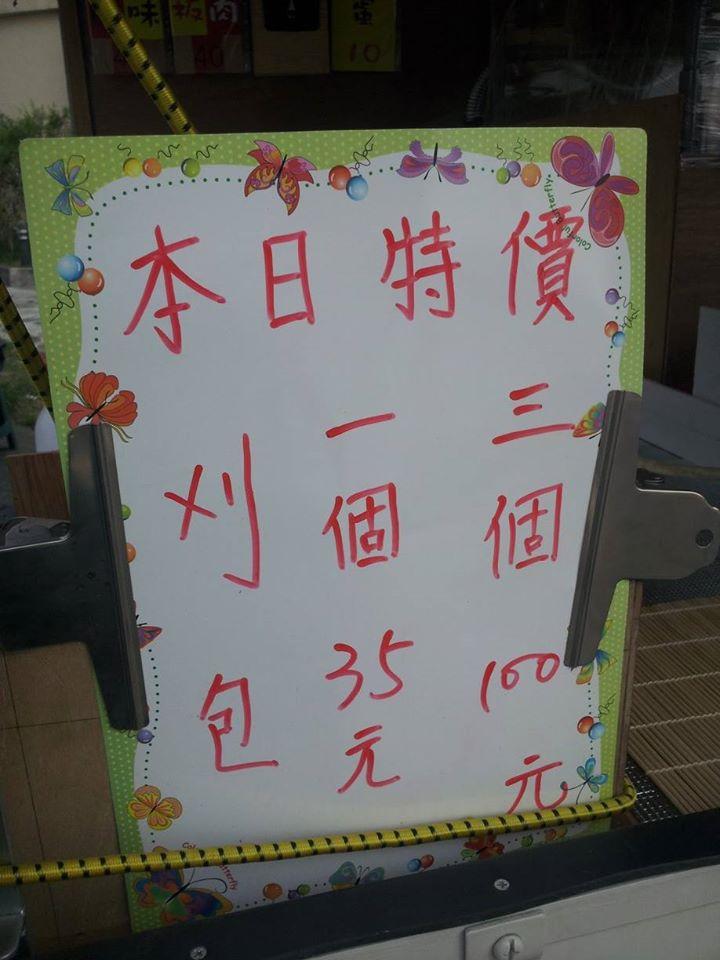 味
板肉
蛋
40
10
本日特價
刈包
一個35元
三個100元
Colorful Butterfly